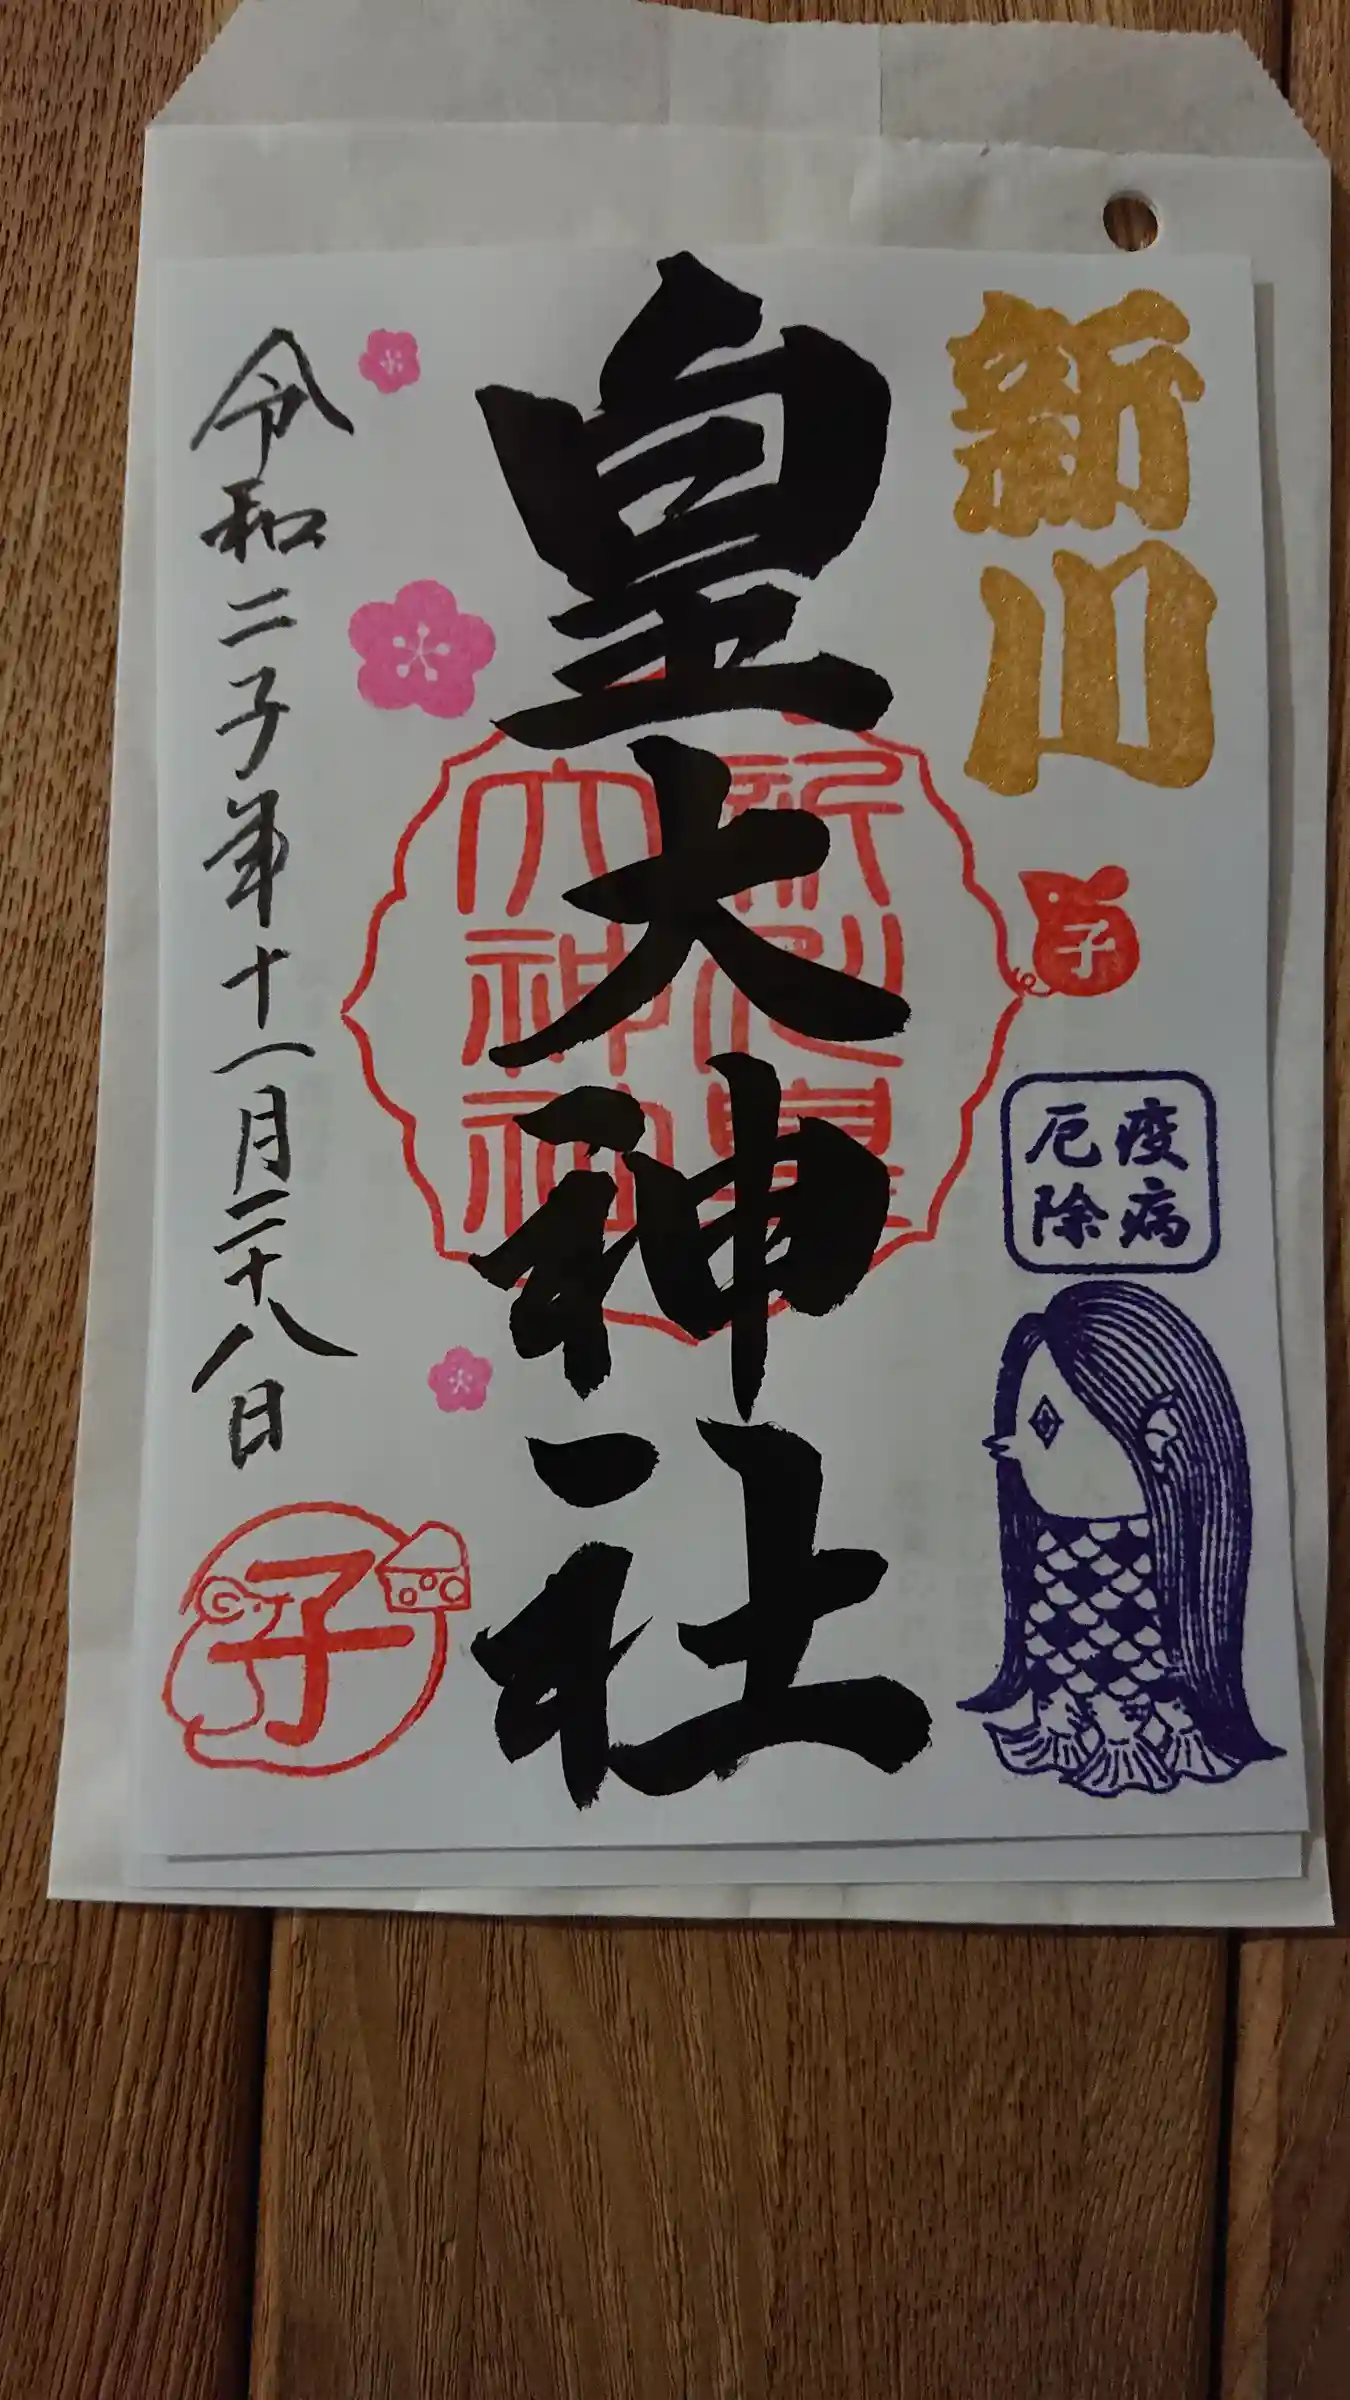 新川
子
疫病
厄除
皇大神社
新川皇
大神神
令和二子年十一月二十八日
子